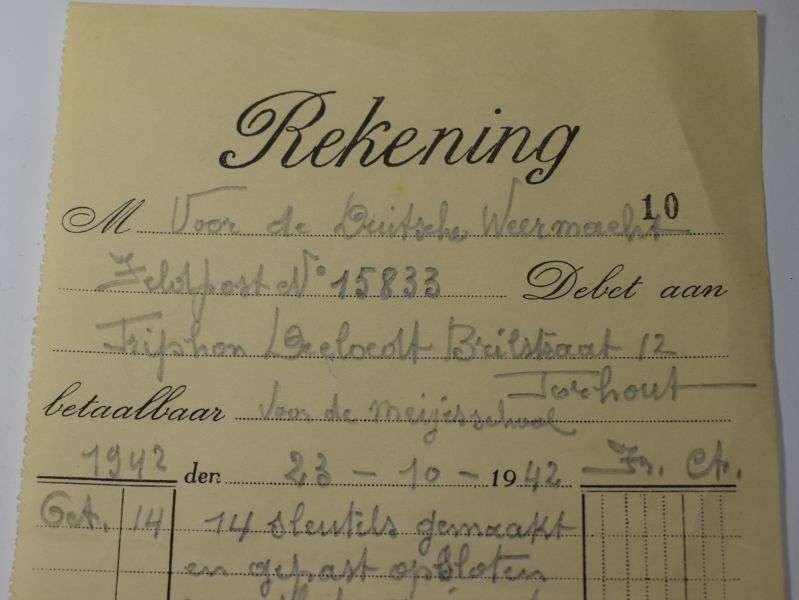 Rekening
10
M Voor de Duitsche Weermacht
Feldpost N° 15833 Debet aan
Triphon Brilstraat 12
Torhout
betaalbaar voor de meisjesschool
1942 den 23 - 10 - 1942 Fr. Ct.
Oct. 14 14 sleutels gemaakt
en gepast op sloten